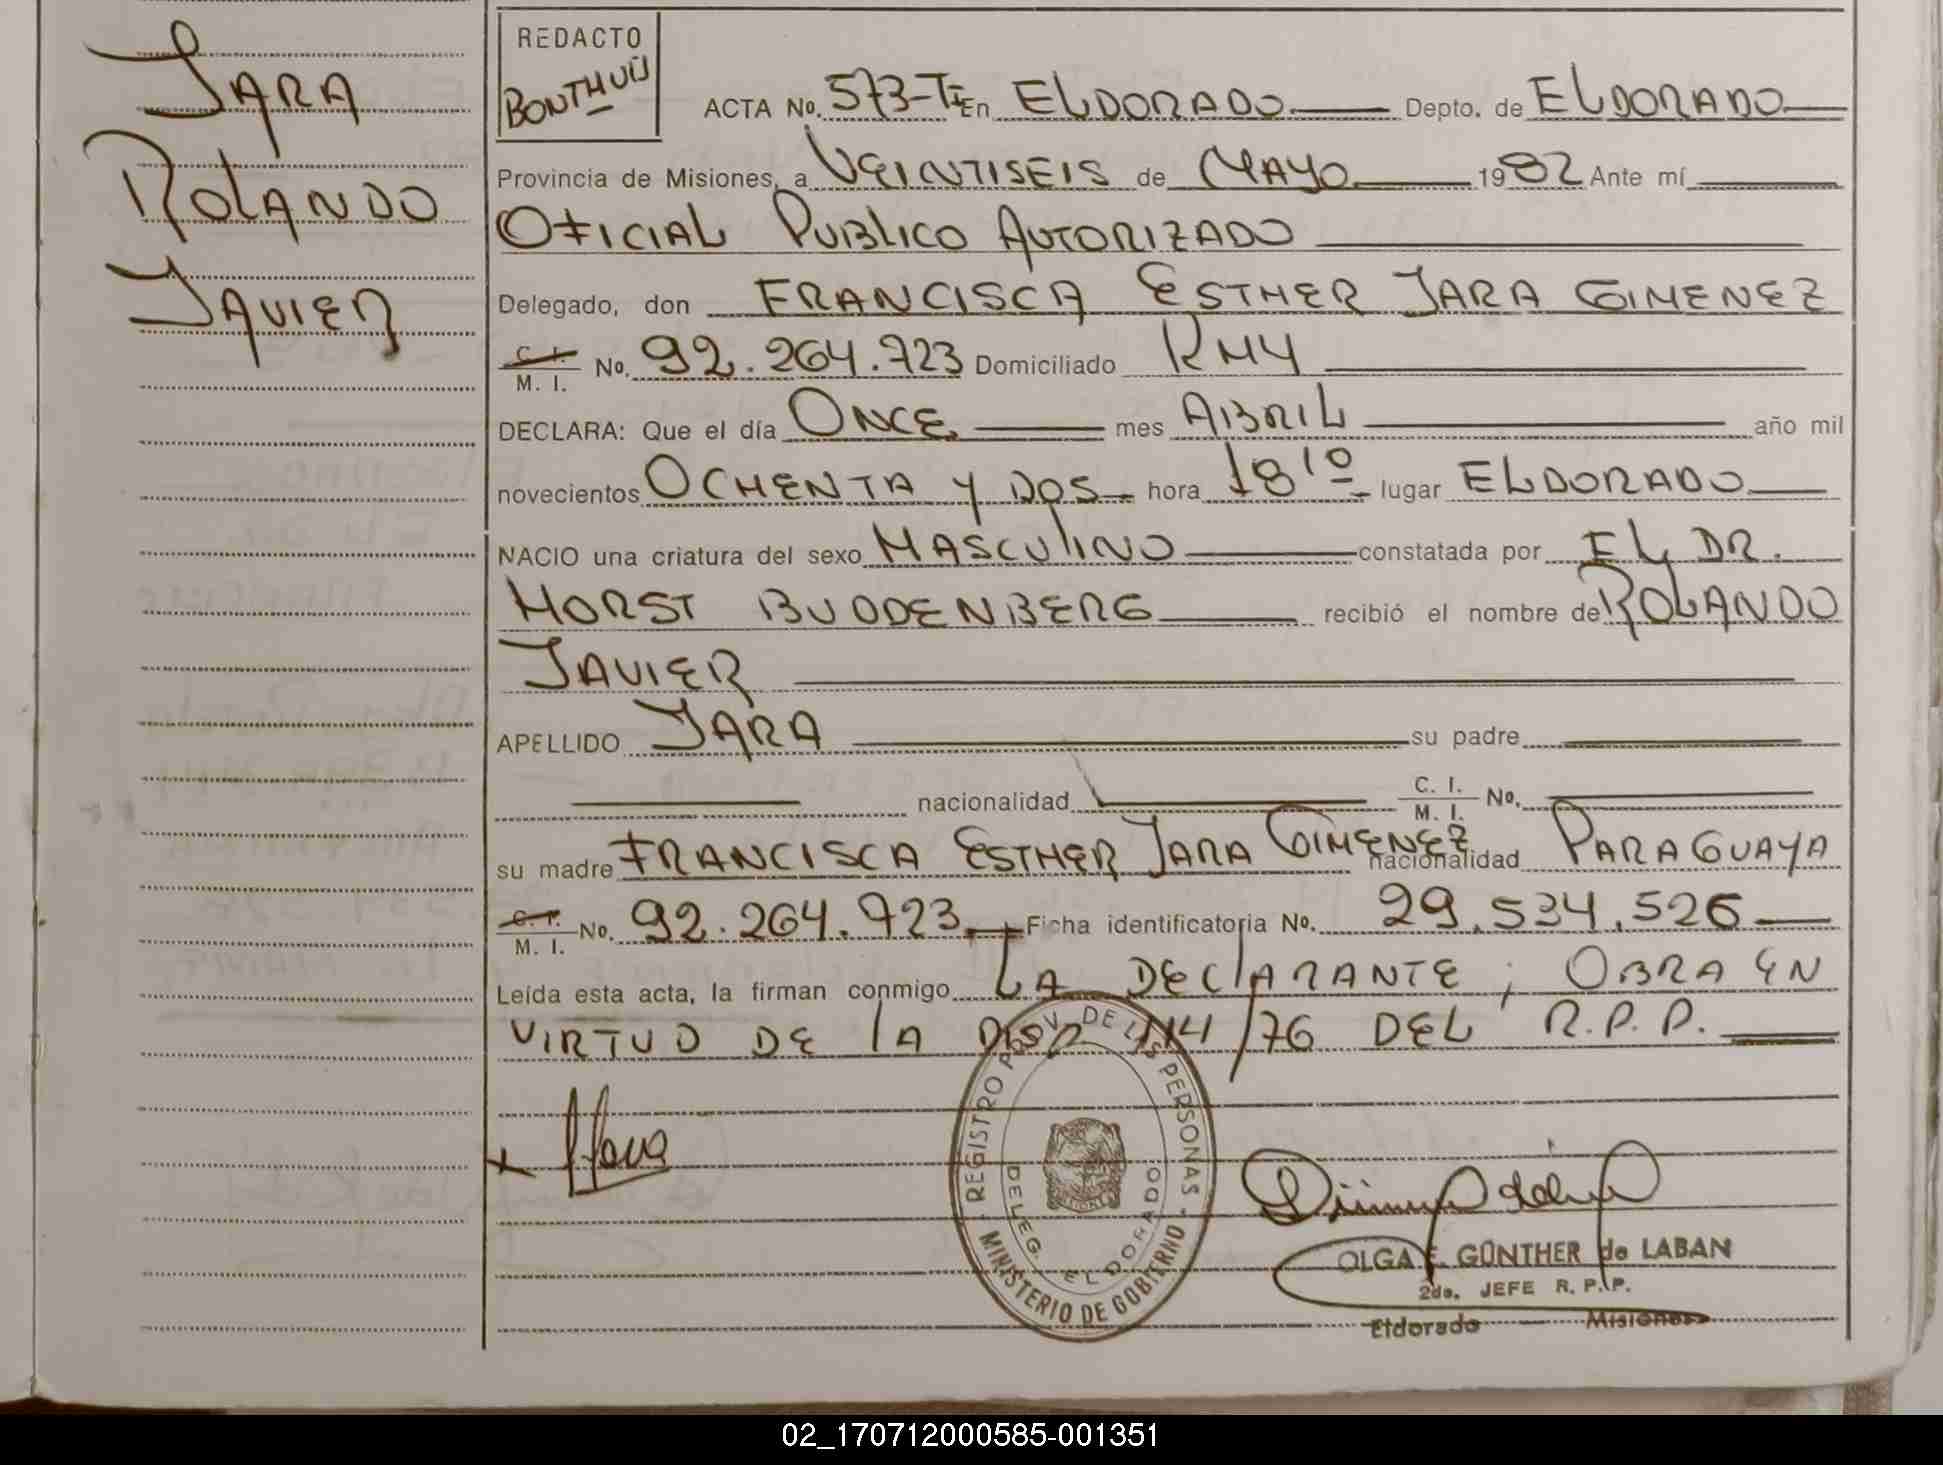 JARA
ROLANDO
JAVIER
REDACTO
BONTHUÜ
ACTA No. 573-TI En ELDORADO Depto. de ELDORADO
Provincia de Misiones, a VEINTISEIS de MAYO 1982 Ante mí
OFICIAL PUBLICO AUTORIZADO
Delegado, don FRANCISCA ESTHER JARA GIMENEZ
C. I. / M. I. No. 92.264.723 Domiciliado KM4
DECLARA: Que el día ONCE mes ABRIL año mil
novecientos OCHENTA Y DOS hora 18¹⁰ lugar ELDORADO
NACIO una criatura del sexo MASCULINO constatada por EL DR.
HORST BUDDENBERG recibió el nombre de ROLANDO
JAVIER
APELLIDO JARA su padre
nacionalidad C. I. / M. I. No.
su madre FRANCISCA ESTHER JARA GIMENEZ nacionalidad PARAGUAYA
C. I. / M. I. No. 92.264.723 Ficha identificatoria No. 29.534.526
Leída esta acta, la firman conmigo LA DECLARANTE; OBRA EN
VIRTUD DE LA DISP 114/76 DEL R.P.P.
REGISTRO PROV. DE LAS PERSONAS
DELEG. ELDORADO
MINISTERIO DE GOBIERNO
OLGA E. GÜNTHER de LABAN
2do. JEFE R. P. P.
Eldorado Misiones
02_170712000585-001351